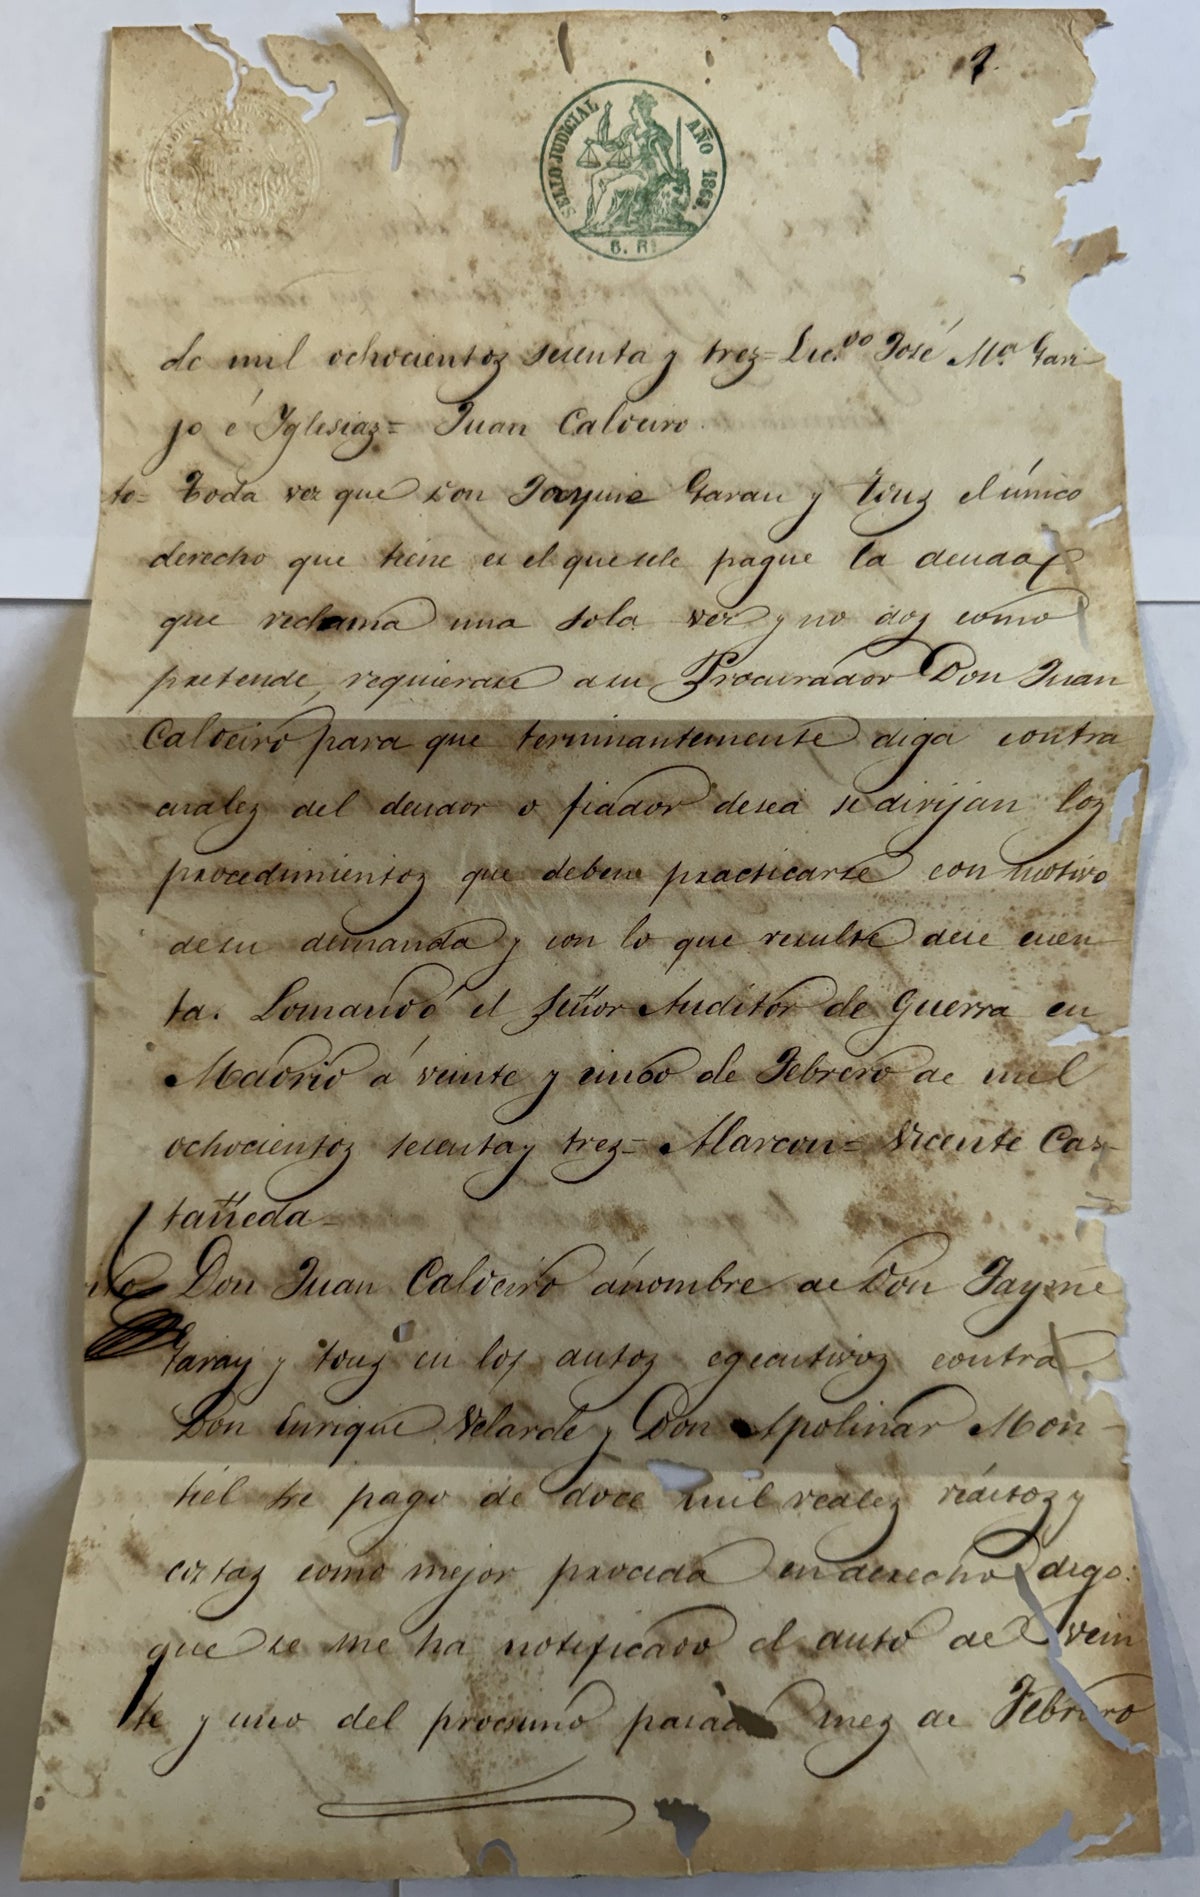 SELLO JUDICIAL AÑO 1863.
6. Rs
de mil ochocientos sesenta y tres= Lic.do José Ma. Gari
jo é Iglesias= Juan Caldeiro.
to= Toda vez que Don Jayme Garau y Tous el único
derecho que tiene es el que sele pague la deuda
que reclama una sola vez y no dos como
pretende, requierase asu Procurador Don Juan
Caldeiro para que terminantemente diga contra
cuales del deudor o fiador desea se dirijan los
procedimientos que deben practicarse con motivo
desu demanda y con lo que resulte dese cuen
ta. Lomandó el Señor Auditor de Guerra en
Madrid á veinte y cinco de Febrero de mil
ochocientos sesenta y tres= Alarcon= Vicente Cas-
tañeda=
Don Juan Caldeiro ánombre de Don Jayme
Garau y Tous en los autos egecutivos contra
Don Enrique Velarde y Don Apolinar Mon-
tiel pago de doce mil reales réditos y
costas como mejor proceda enderecho digo:
que se me ha notificado el auto de vein
te y uno del procsimo pasado mes de Febrero